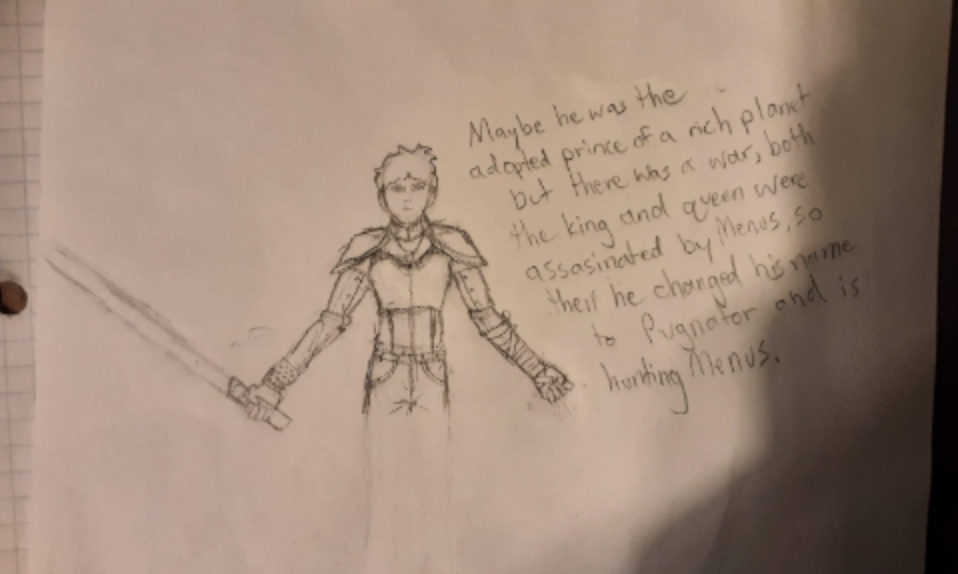 Maybe he was the
adopted prince of a rich planet
but there was a war, both
the king and queen were
assasinated by Menus, so
then he changed his name
to Pugnator and is
hunting Menus.